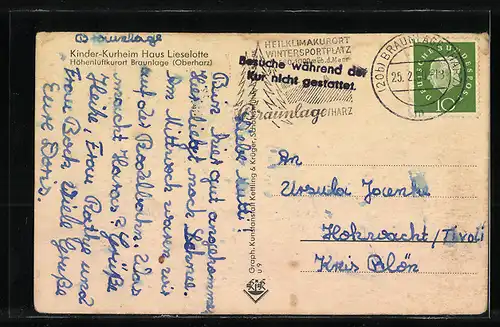 Braunlage
Kinder-Kurheim Haus Lieselotte
Höhenluftkurort Braunlage (Oberharz)
Liebe Mutti!
Bin hier gut angekommen.
Hier liegt noch Schnee.
Am Mittwoch waren wir
auf der Rodelbahn. Was
macht ? Grüße
Heike, Frau und
Frau Bock. Viele Grüße
Eure Doris.
Graph. Kunstanstalt Kettling & Krüger,
U 9
K&K
HEILKLIMAKURORT
WINTERSPORTPLATZ
Besuche während der
Kur nicht gestattet.
Braunlage/HARZ
(20b) BRAUNLAGE
25. 2.
DEUTSCHE BUNDESPOST
10
An
Ursula
Hohwacht/Tivoli
Kreis Plön